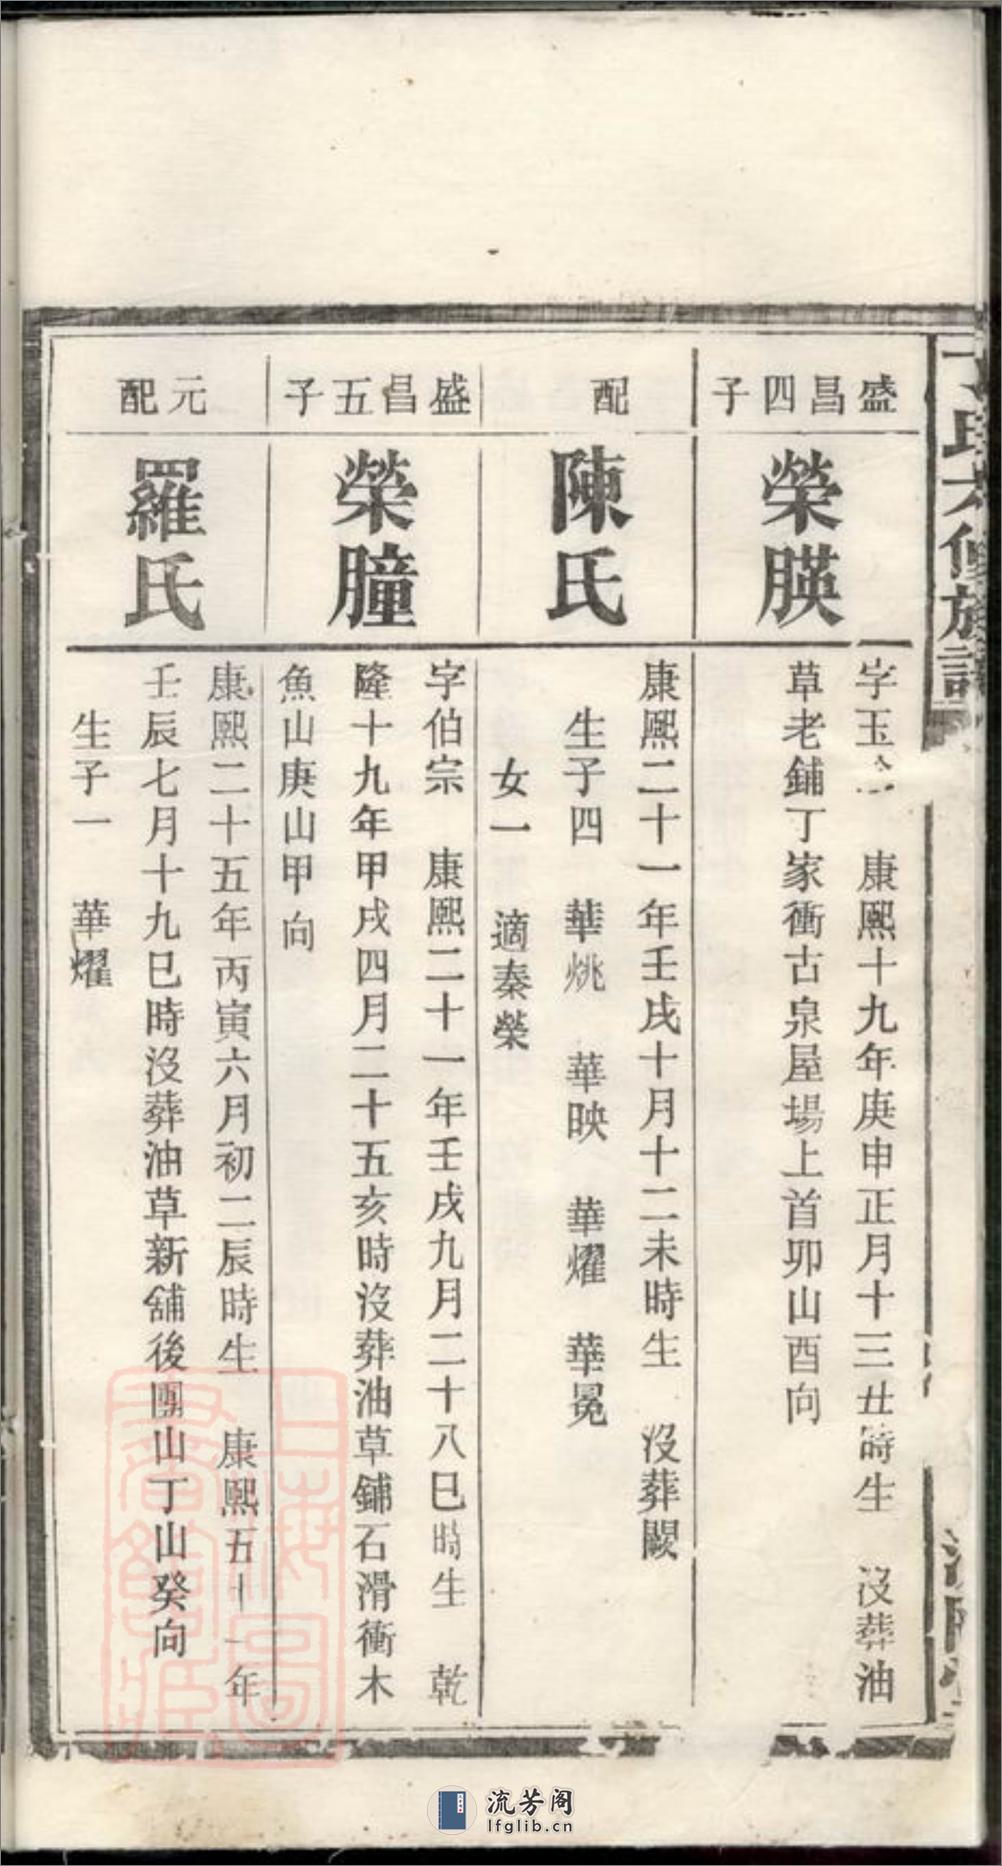 氏六修族譜
盛昌四子
榮朠
字玉 康熙十九年庚申正月十三丑時生 沒葬油
草老鋪丁家衝古泉屋場上首卯山酉向
配
陳氏
康熙二十一年壬戌十月十二未時生 沒葬闕
生子四 華烑 華映 華燿 華冕
女一 適秦榮
盛昌五子
榮朣
字伯宗 康熙二十一年壬戌九月二十八巳時生 乾
隆十九年甲戌四月二十五亥時沒葬油草鋪石滑衝木
魚山庚山甲向
元配
羅氏
康熙二十五年丙寅六月初二辰時生 康熙五十一年
壬辰七月十九巳時沒葬油草新舖後團山丁山癸向
生子一 華燿
上海圖書館藏
流芳阁
lfglib.cn